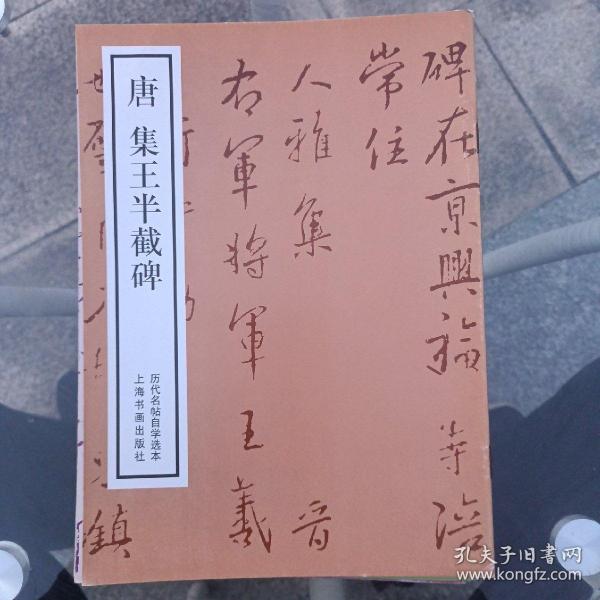 唐 集王半截碑
历代名帖自学选本
上海书画出版社
碑在京興福寺陪
常住
人雅集 晋
右軍將軍王羲
鎮
孔夫子旧书网
www.kongfz.com